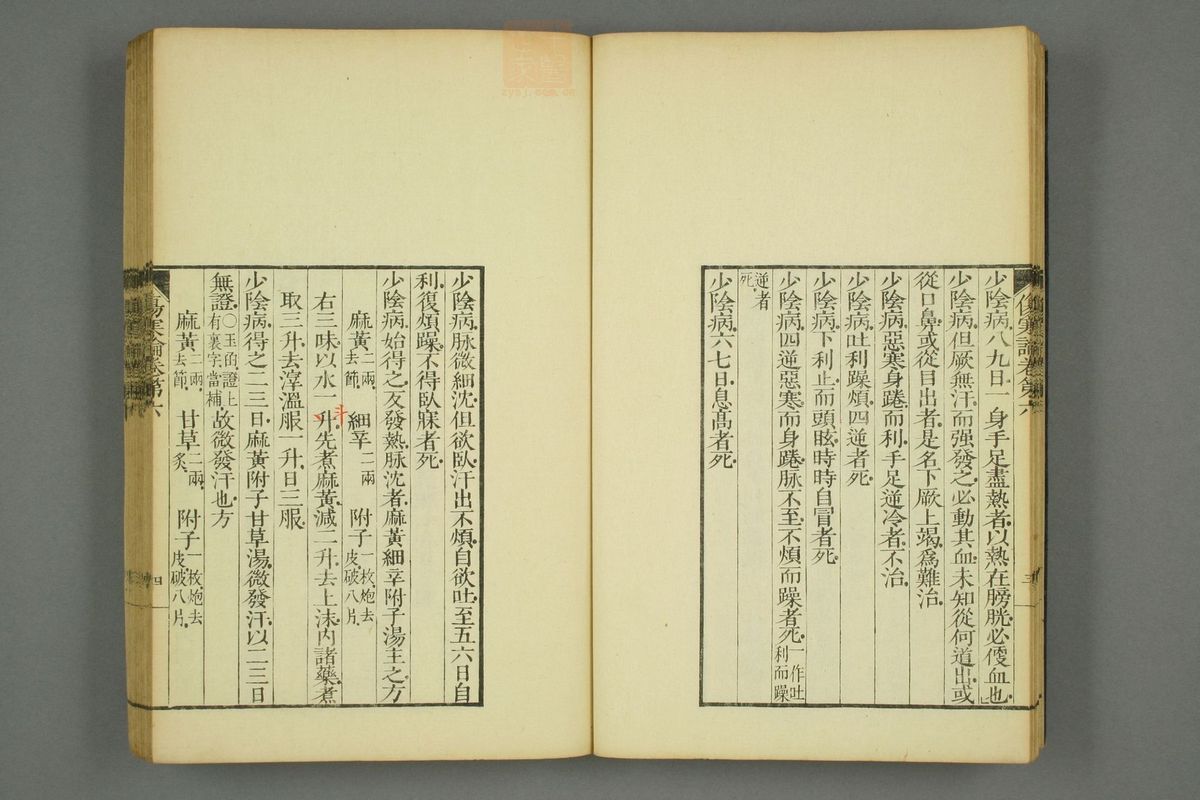 少陰病八九日一身手足盡熱者以熱在膀胱必便血也
少陰病但厥無汗而强發之必動其血未知從何道出或
從口鼻或從目出者是名下厥上竭爲難治
少陰病惡寒身踡而利手足逆冷者不治
少陰病吐利躁煩四逆者死
少陰病下利止而頭眩時時自冒者死
少陰病四逆惡寒而身踡脉不至不煩而躁者死一作吐利而躁
逆者死
少陰病六七日息高者死
傷寒論卷第六
三
少陰病脉微細沈但欲臥汗出不煩自欲吐至五六日自
利復煩躁不得臥寐者死
少陰病始得之反發熱脉沈者麻黃細辛附子湯主之方
麻黃二兩去節 細辛二兩 附子一枚炮去皮破八片
右三味以水一升先煮麻黃減二升去上沫內諸藥煮
斗
取三升去滓溫服一升日三服
少陰病得之二三日麻黃附子甘草湯微發汗以二三日
無證〇玉的證上有裏字當補故微發汗也方
麻黃二兩去節 甘草二兩炙 附子一枚炮去皮破八片
傷寒論卷第六
四
zysj.com.cn